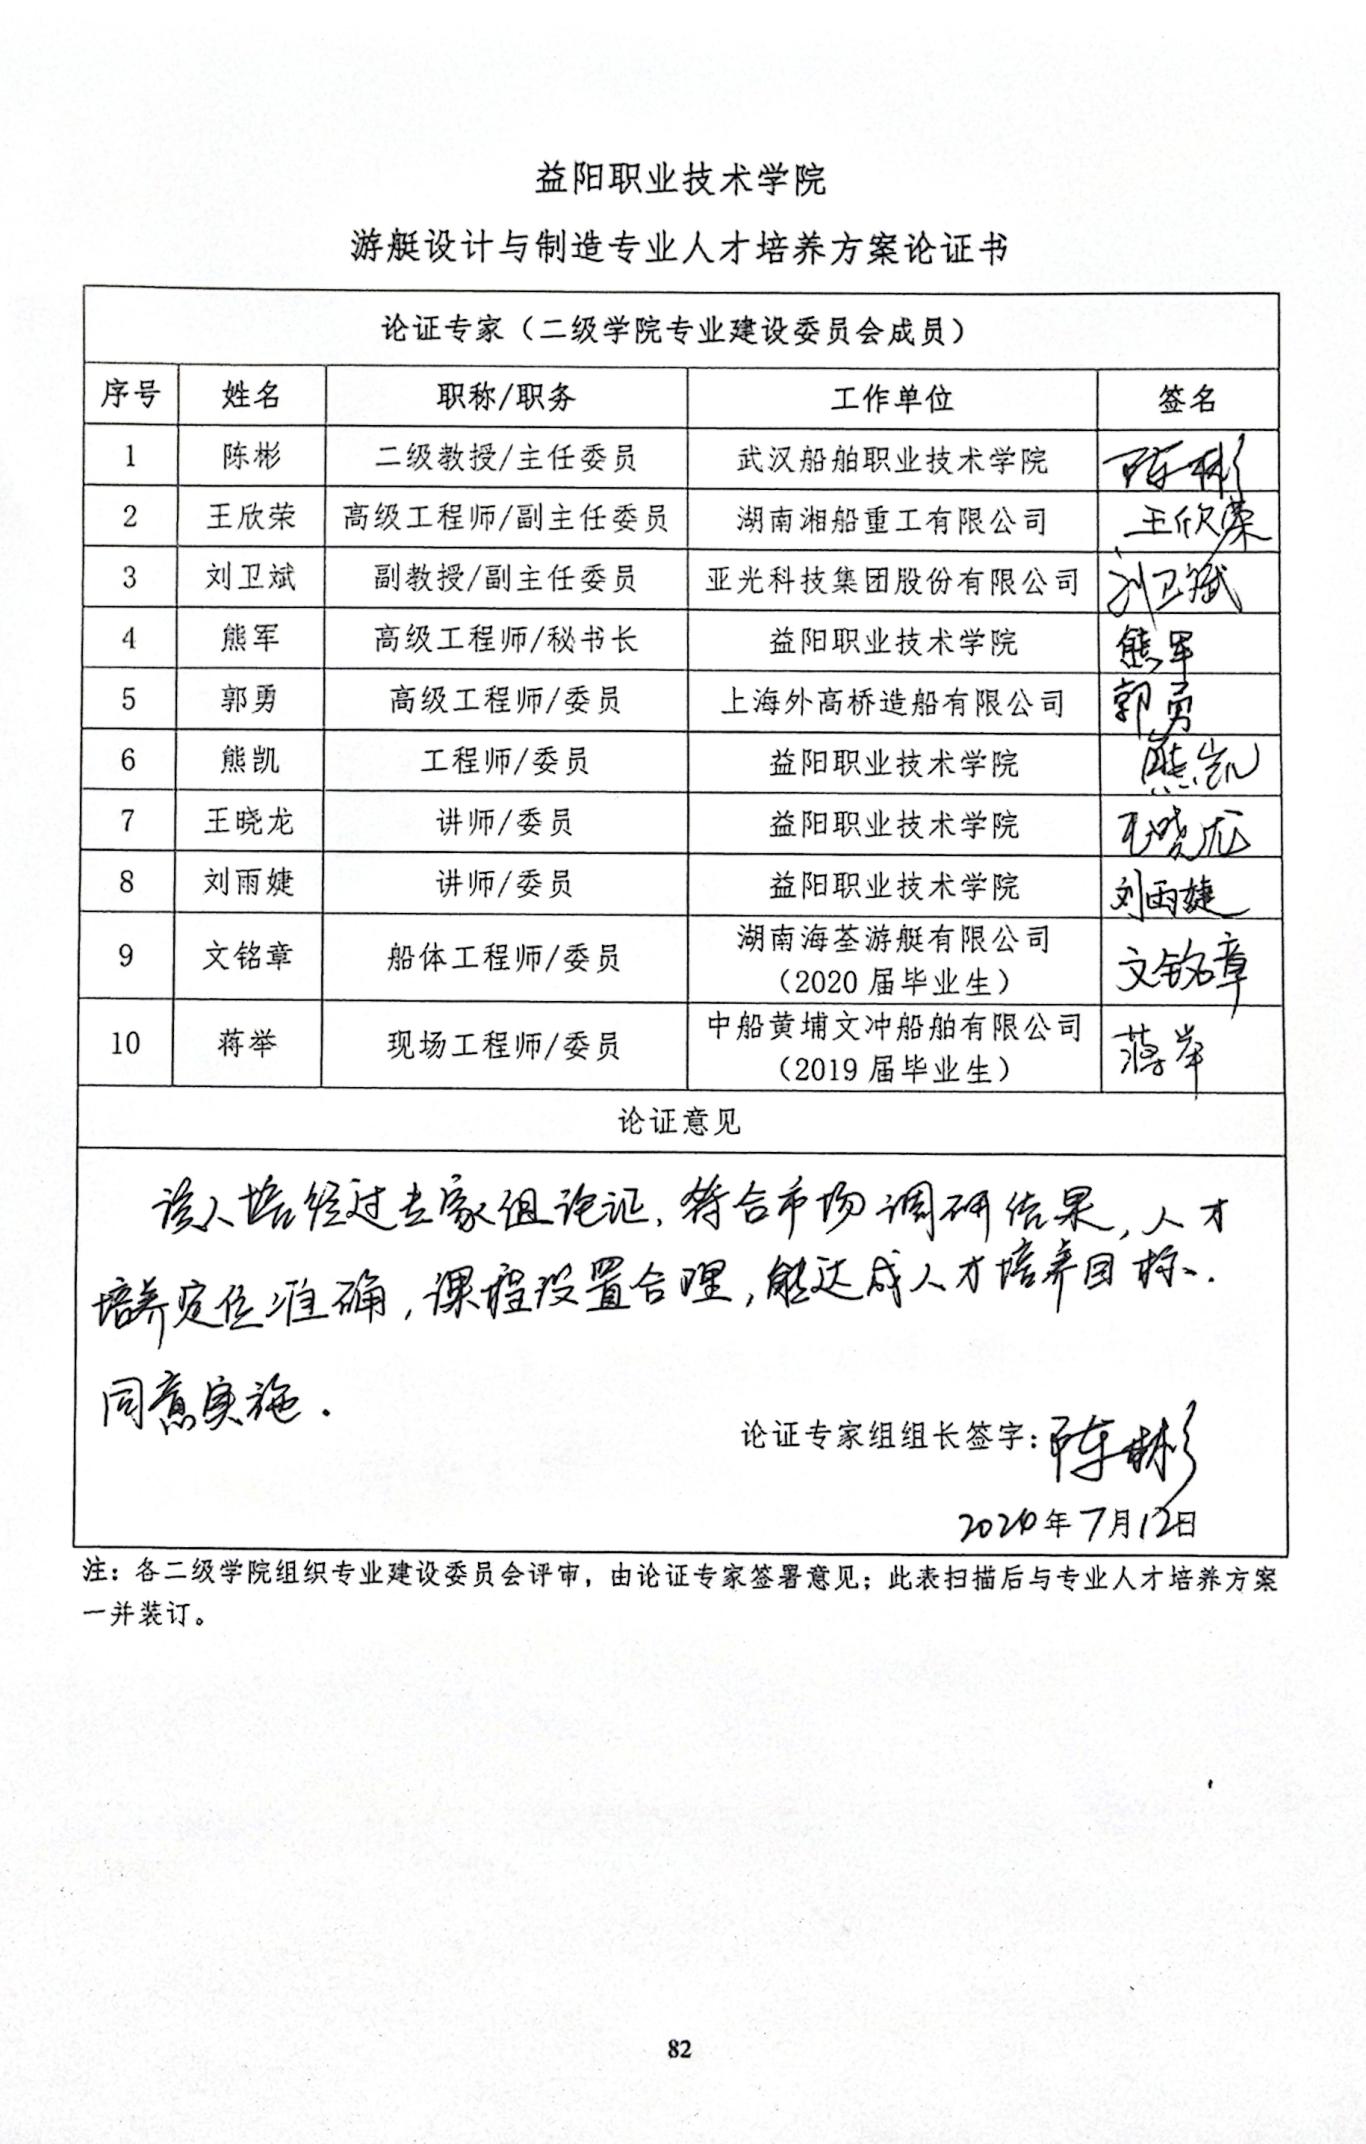 益阳职业技术学院
游艇设计与制造专业人才培养方案论证书
论证专家（二级学院专业建设委员会成员）
序号 姓名 职称/职务 工作单位 签名
1 陈彬 二级教授/主任委员 武汉船舶职业技术学院 陈彬
2 王欣荣 高级工程师/副主任委员 湖南湘船重工有限公司 王欣荣
3 刘卫斌 副教授/副主任委员 亚光科技集团股份有限公司 刘卫斌
4 熊军 高级工程师/秘书长 益阳职业技术学院 熊军
5 郭勇 高级工程师/委员 上海外高桥造船有限公司 郭勇
6 熊凯 工程师/委员 益阳职业技术学院 熊凯
7 王晓龙 讲师/委员 益阳职业技术学院 王晓龙
8 刘雨婕 讲师/委员 益阳职业技术学院 刘雨婕
9 文铭章 船体工程师/委员 湖南海荃游艇有限公司 文铭章
（2020 届毕业生）
10 蒋举 现场工程师/委员 中船黄埔文冲船舶有限公司 蒋举
（2019 届毕业生）
论证意见
该人培经过专家组论证，符合市场调研结果，人才
培养定位准确，课程设置合理，能达成人才培养目标．
同意实施．
论证专家组组长签字：陈彬
年7月12日
注：各二级学院组织专业建设委员会评审，由论证专家签署意见；此表扫描后与专业人才培养方案
一并装订。
82